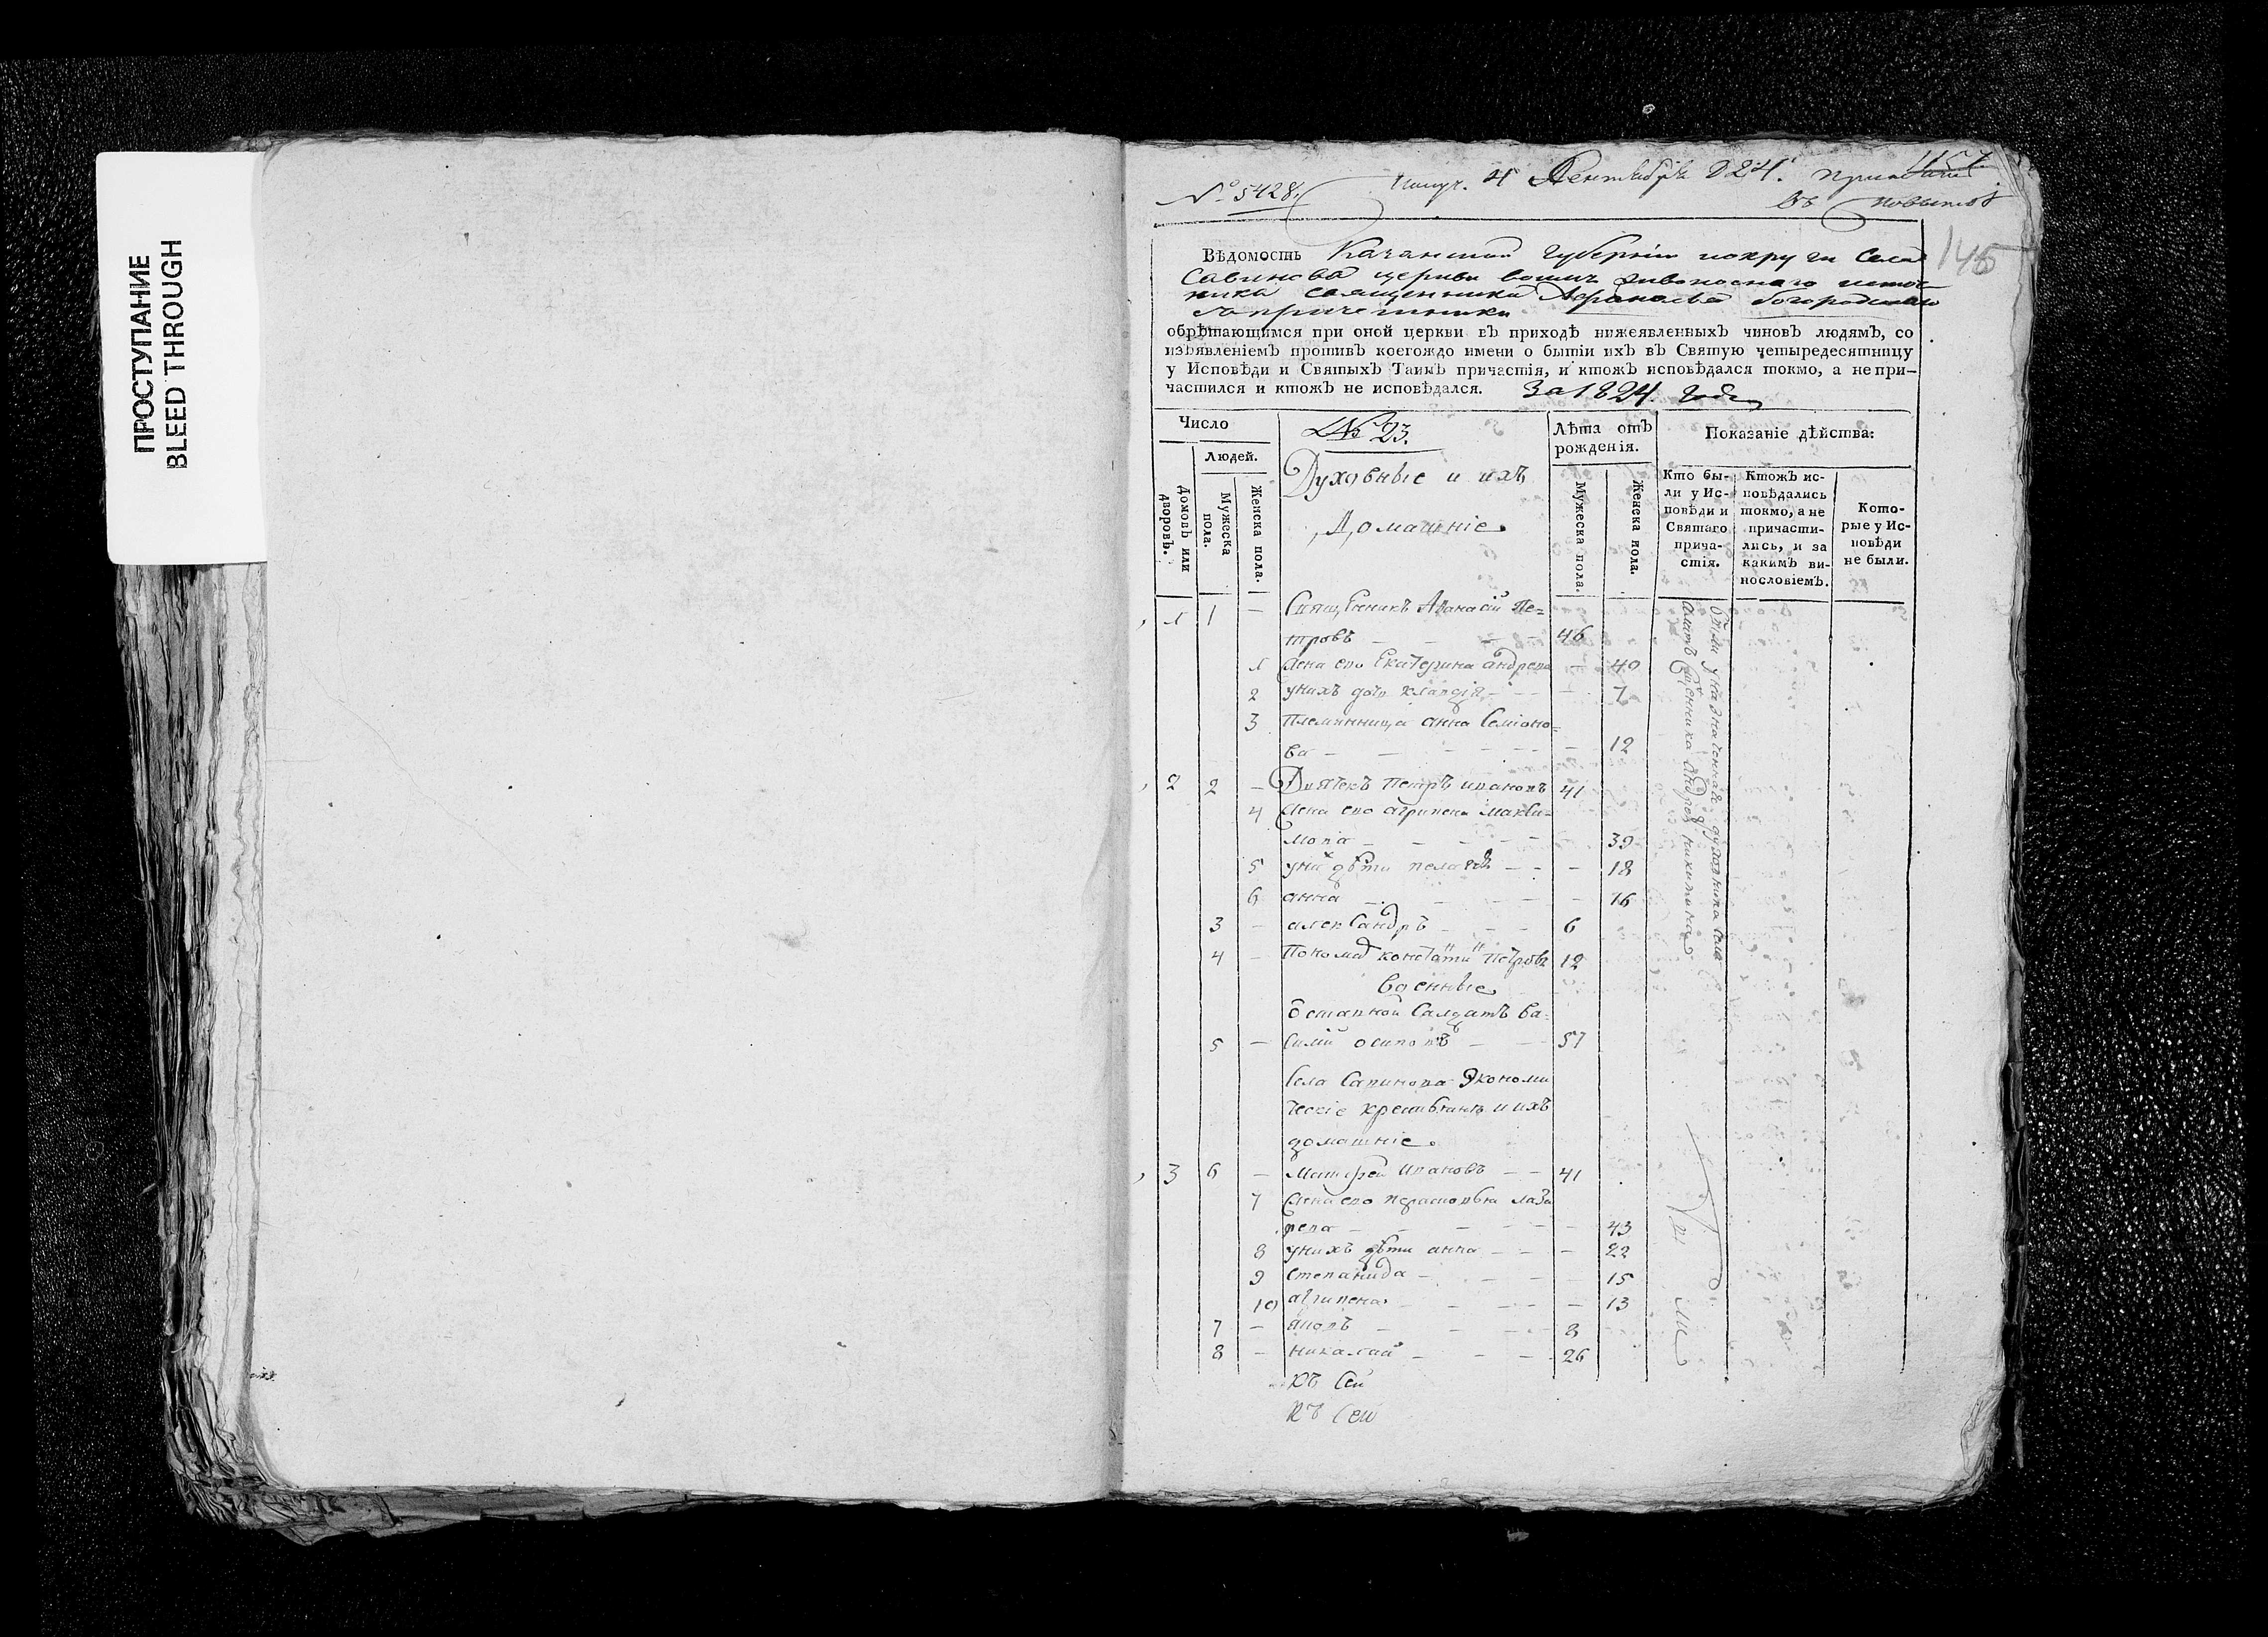 ПРОСТУПАНИЕ
BLEED THROUGH
457
№ 5428. Получ. 4 Сентября 824.
въ
145
Вѣдомость Казанской губерніи округи Села
Савинова церкви во имя живоносного источ-
ника священника Афанасья
съ причетники
обрѣтающимся при оной церкви въ приходѣ нижеявленныхъ чиновъ людямъ, со
изъявленіемъ противъ коегождо имени о бытіи ихъ въ Святую четыредесятницу
у Исповѣди и Святыхъ Таинъ причастія, и ктожъ исповѣдался токмо, а непри-
частился и ктожъ не исповѣдался. За 1824. годъ
Число
Людей.
Домовъ или дворовъ.
Мужеска пола.
Женска пола.
№ 23.
Духовные и ихъ
Домашніе
Лѣта отъ рожденія.
Мужеска пола.
Женска пола.
Показаніе дѣйства:
Кто бы-
ли у Ис-
повѣди и
Святаго
прича-
стія.
Ктожъ ис-
повѣдались
токмо, а не
причасти-
лись, и за
какимъ ви-
нословіемъ.
Кото-
рые у Ис-
повѣди
не были.
1 1 — Священникъ Афанасій Пе=
тровъ — — — 46
1 Жена ево Екатерина андрева 40
2 у нихъ дочь клавдія — — 7
3 Племянница анна Семіоно=
ва — — — 12
2 2 — Дьячекъ Петръ ивановъ 41
4 Жена ево агрипена макси=
мова — — — 39
5 у них дѣти пелагея — — 18
6 анна — — — 16
3 — александръ — — 6
4 — Понома констати Петровъ 12
Военные
Оставной Салдатъ Ва=
5 — силий осиповъ — — 57
Села Савинова Экономи
ческіе крестьяне и ихъ
домашніе.
3 6 — Матфей Ивановъ — — 41
7 Жена ево парасковья лаза
рева — — — 43
8 у нихъ дѣти анна — — 22
9 Степанида — — — 15
10 агрипена — — — 13
7 — яковъ — — — 8
8 — николай — — — 26
были у духовника села
никитина
были